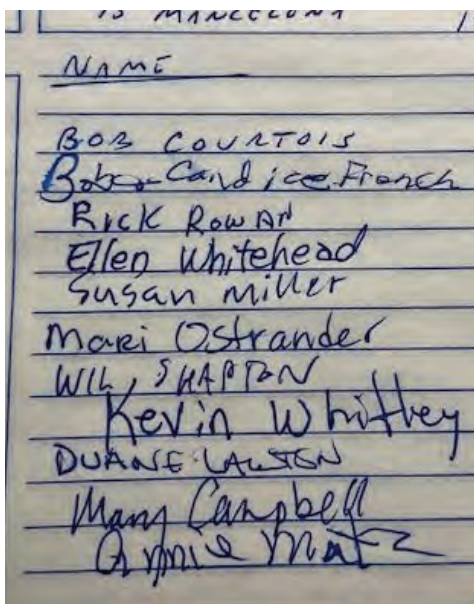 NAME
BOB COURTOIS
Bob & Candice French
RICK ROWAN
Ellen Whitehead
Susan Miller
Mari Ostrander
WIL SHAPTON
Kevin Whitney
DUANE LAWTON
Mary Campbell
Annie Matz